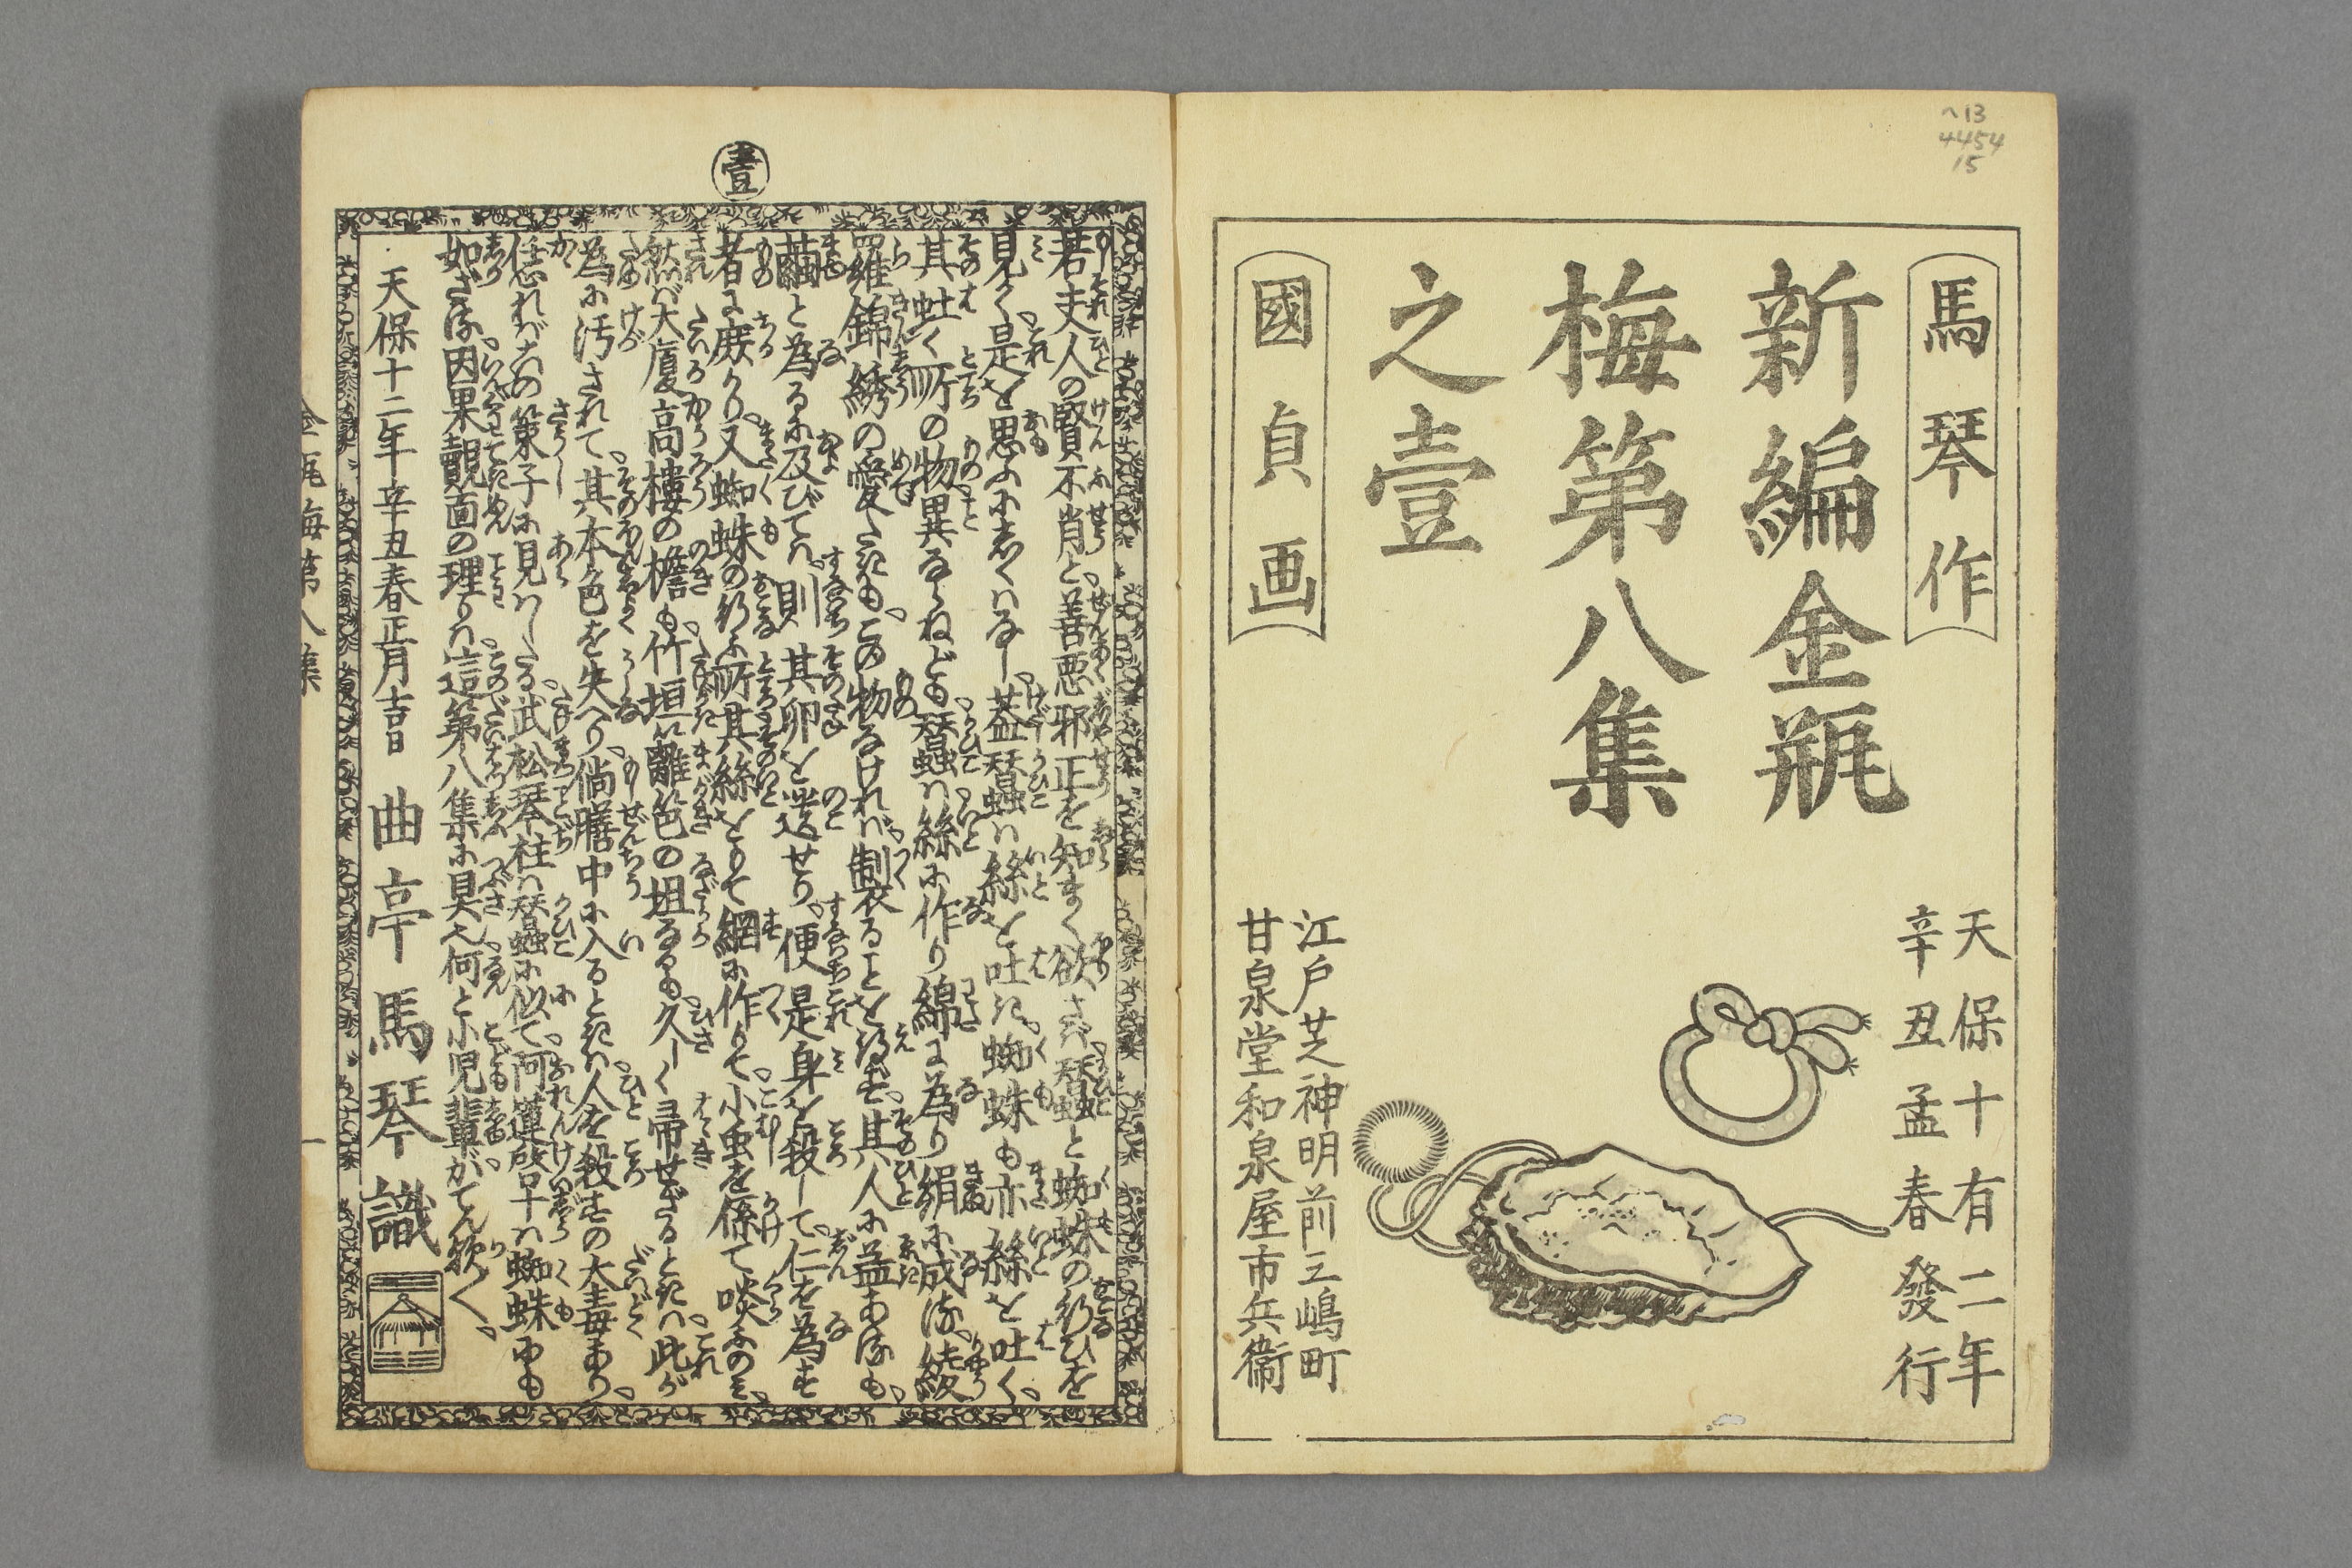 へ13
4454
15
馬琴作
新編金瓶
梅第八集
之壹
國貞画
天保十有二年
辛丑孟春發行
江戸芝神明前三嶋町
甘泉堂和泉屋市兵衞
壹
若夫人の賢不肖と善悪邪正を知まく欲さば蠶と蜘蛛の行ひを
見て是を思ふに如くはなし蓋蠶は絲を吐き蜘蛛も亦絲を吐く
其吐く所の物異ならねども蠶は絲に作り綿に為り絹に成る綾
羅錦綉の愛たきもこの物なければ製ることを得ず其人に益ある也
繭と為るに及びては則其卵を遺せり便是身を殺して仁を為す
者に庶かり又蜘蛛の行ふ所其絲をもて網に作りて小虫を係て啖ふのみ
然ば大厦高樓の檐も竹垣籬笆の坦なるも久しく帚せざるときは此が
為に汚されて其本色を失へり倘膳中に入るときは人を殺すの大毒あり
恁れば这の策子に見はしたる武松琴柱は蠶に似て阿蓮啓十は蜘蛛にも
如ざる因果覿面の理りは這第八集に具也何と小児輩がてん歟〳〵
天保十二年辛丑春正月吉日　曲亭馬琴識
金瓶梅第八集　一